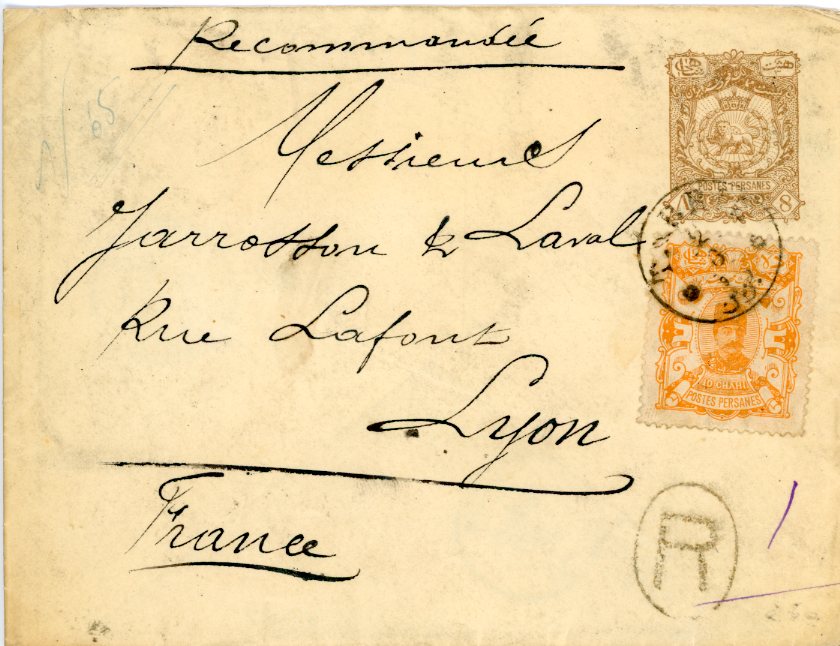 Recommandée
Messieurs
Jarrosson & Laval
Rue Lafont
Lyon
France
POSTES PERSANES
8
10 CHAHI
POSTES PERSANES
R
65